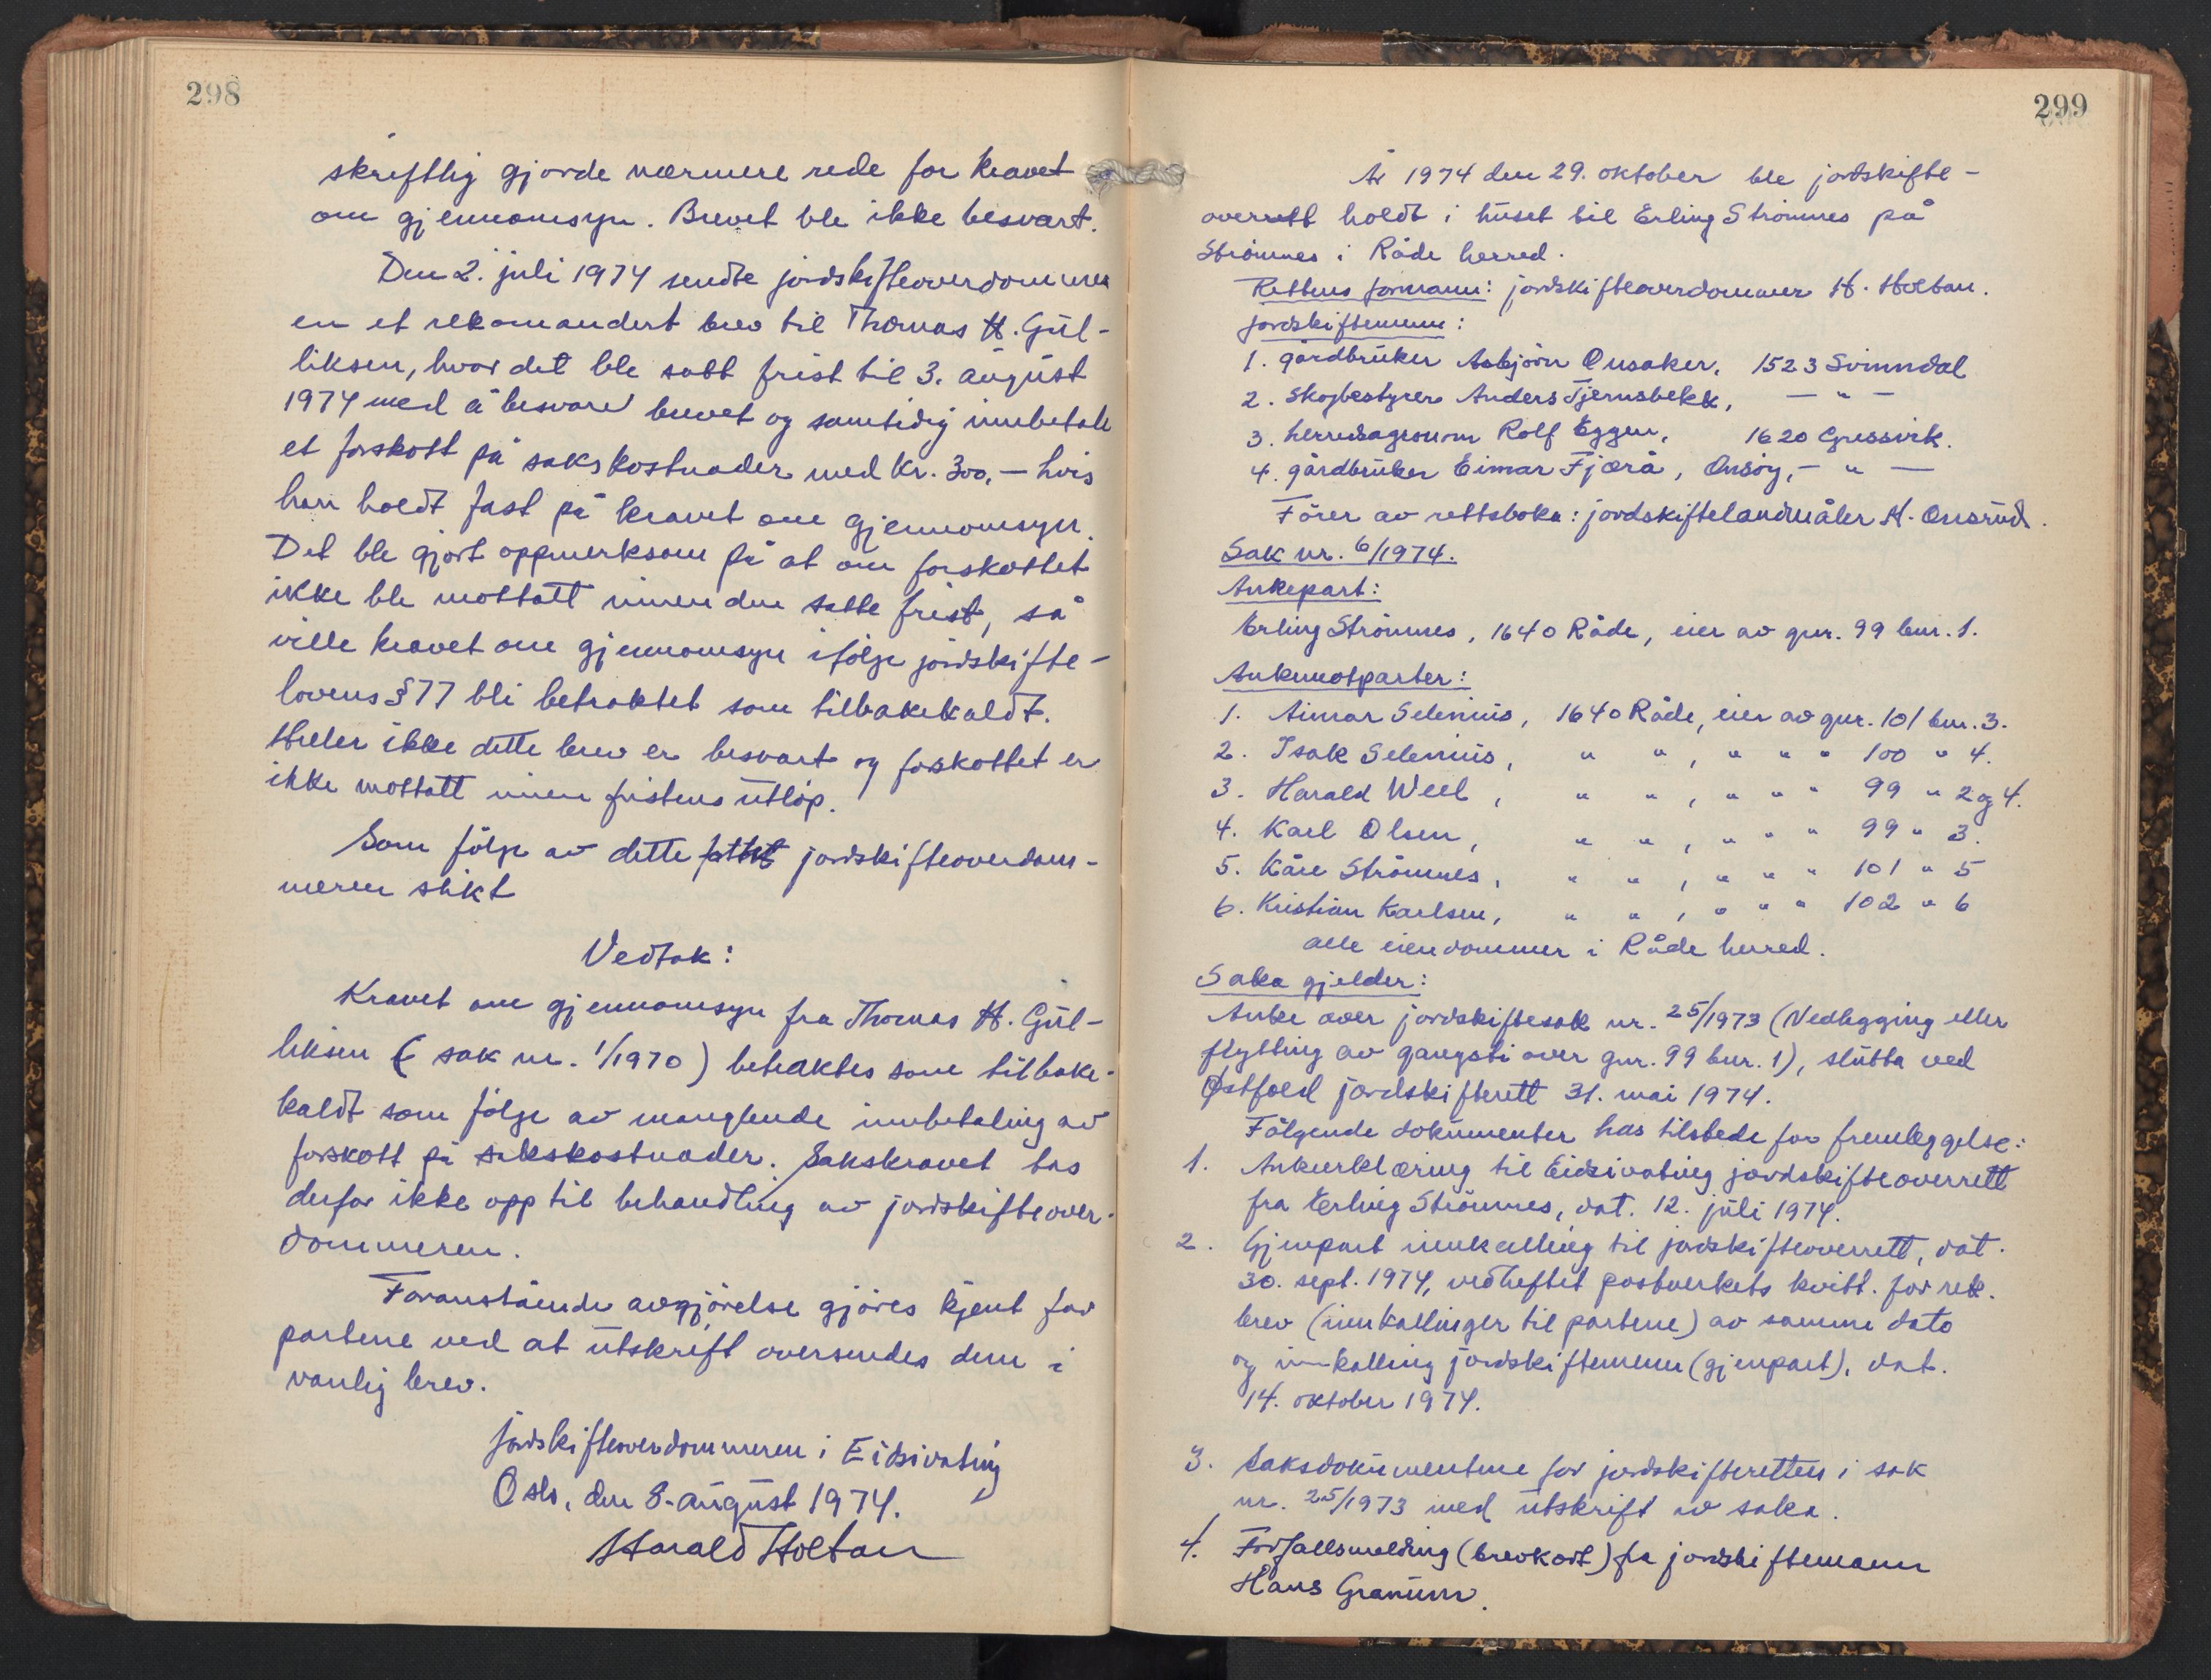 298
skriftlig gjorde nærmere rede for kravet
om gjennomsyn. Brevet ble ikke besvart.
Den 2. juli 1974 sendte jordskifteoverdommer
en et rekomandert brev til Thomas H. Gul-
liksen, hvor det ble satt frist til 3. august
1974 med å besvare brevet og samtidig innbetale
et forskott på sakskostnader med kr. 300,- hvis
han holdt fast på kravet om gjennomsyn.
Det ble gjort oppmerksom på at om forskottet
ikke ble mottatt innen den satte frist, så
ville kravet om gjennomsyn ifølge jordskifte-
lovens § 77 bli betraktet som tilbakekaldt.
Heller ikke dette brev er besvart og forskottet er
ikke mottatt innen fristens utløp.
Som følge av dette fattet jordskifteoverdom-
meren slikt
Vedtak:
Kravet om gjennomsyn fra Thomas H. Gul-
liksen (sak nr. 1/1970) betraktes som tilbake-
kaldt som følge av manglende innbetaling av
forskott på sakskostnader. Sakskravet tas
derfor ikke opp til behandling av jordskifteover-
dommeren.
Foranstående avgjørelse gjøres kjent for
partene ved at utskrift oversendes dem i
vanlig brev.
Jordskifteoverdommeren i Eidsivating
Oslo, den 8. august 1974.
Harald Holtan
299
År 1974 den 29. oktober ble jordskifte-
overrett holdt i huset til Erling Strømnes på
Strømnes i Råde herred.
Rettens formann: jordskifteoverdommer H. Holtan.
Jordskiftemenn:
1. gårdbruker Asbjørn Onsaker, 1523 Svinndal
2. Skogbestyrer Anders Tjernsbekk, — " —
3. herredsagronom Rolf Eggen, 1620 Gressvik.
4. gårdbruker Eimar Fjærå, Onsøy, — " —
Fører av rettsboka: jordskiftelandmåler H. Onsrud.
Sak nr. 6/1974.
Ankepart:
Erling Strømnes, 1640 Råde, eier av gnr. 99 bnr. 1.
Ankemotparter:
1. Aimar Selenius, 1640 Råde, eier av gnr. 101 bnr. 3.
2. Isak Selenius, " " , " " " 100 " 4.
3. Harald Weel, " " , " " " 99 " 2 og 4.
4. Karl Olsen, " " , " " " 99 " 3.
5. Kåre Strømnes, " " , " " " 101 " 5
6. Kristian Karlsen, " " , " " " 102 " 6
alle eiendommer i Råde herred.
Saka gjelder:
Anke over jordskiftesak nr. 25/1973 (Nedlegging eller
flytting av gangsti over gnr. 99 bnr. 1), slutta ved
Østfold jordskifterett 31. mai 1974.
Følgende dokumenter has tilstede for fremleggelse:
1. Ankeerklæring til Eidsivating jordskifteoverrett
fra Erling Strømnes, dat. 12. juli 1974.
2. Gjenpart innkalling til jordskifteoverrett, dat.
30. sept. 1974, vedheftet postverkets kvitt. for rek.
brev (innkallinger til partene) av samme dato
og innkalling jordskiftemenn (gjenpart), dat.
14. oktober 1974.
3. Saksdokumentene for jordskifteretten i sak
nr. 25/1973 med utskrift av saka.
4. Forfallsmelding (brevkort) fra jordskiftemann
Hans Granum.